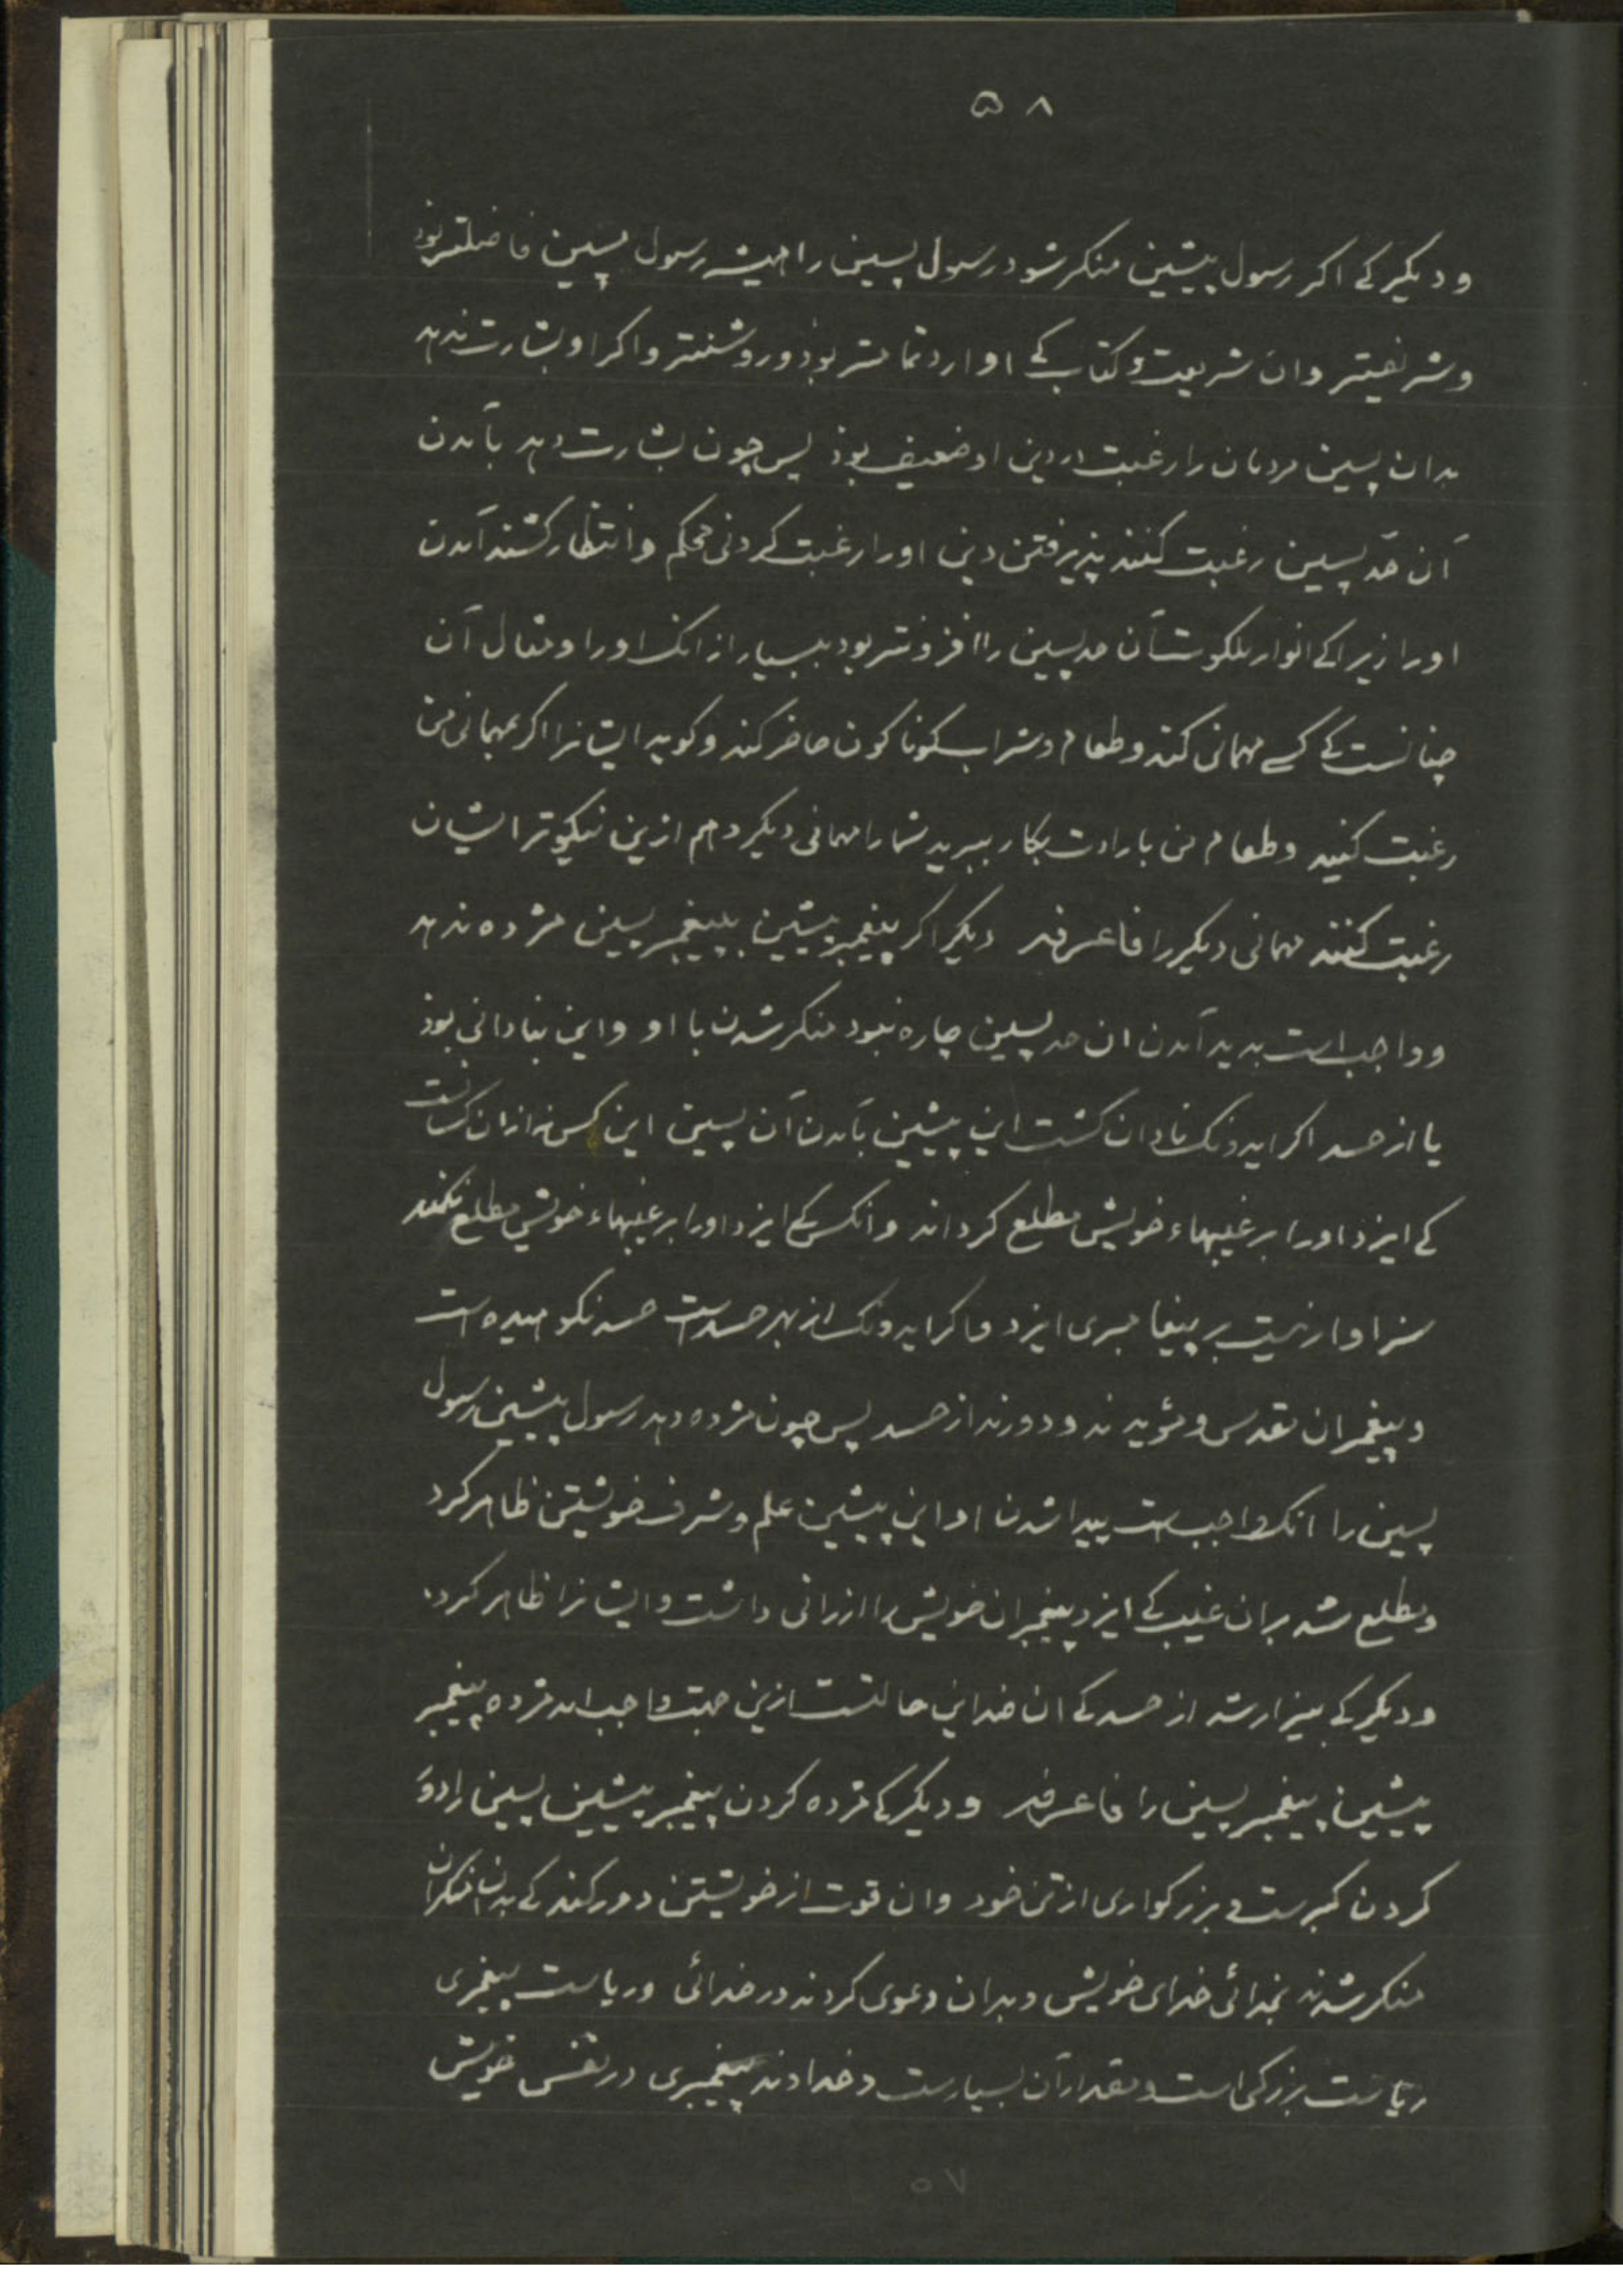 ۵۸
و دیکیر کے اکر رسول پیشین منکر شود رسول پسین را همیشه رسول پسین فاضلتر بوذ
و شریفیتر وان شریعت و کتاب کے او ارد تمامتر بوذ و روشنتر و اکر او بشارت ندهد
بدان پسین مردمان را رغبت در دین او ضعیف بوذ پس چون بشارت دهد بآمدن
آن حدّ پسین رغبت کنند پذیرفتن دین او را رغبت کردنی محکم و انتظار کشند آمدن
او را زیراکے انوار ملکوت آن حد پسین را افزونتر بود بسیار از انک او را و مثال آن
چنانست کے کسے مهمانی کند و طعام و شراب کوناکون حاضر کند و کوید ایشانرا اکر بمهمانی من
رغبت کنید و طعام من بارادت بکار ببرید شما را مهمانی دیکر دهم ازین نیکوتر ایشان
رغبت کنند مهمانی دیکر را فاعرفه دیکر اکر پیغمبر پیشین بپیغمبر پسین مژده ندهد
و واجب است بدید آمدن ان حد پسین چاره نبود منکر شدن با او و این بنادانی بوذ
یا از حسد اکر ایدونک نادان کشت این پیشین بآمدن آن پسین این کس نه از ان کسانست
کے ایزد او را بر غیبهاء خویش مطلع کرداند و انکس کے ایزد او را بر غیبهاء خویش مطلع نکند
سزاوار نیست بر پیغامبری ایزد و اکر ایدونک از بهر حسد است حسد نکوهیده است
و پیغمبران مقدس و مؤیدند و دورند از حسد پس چون مژده دهد رسول پیشین رسول
پسین را انک واجب است پیدا شدن او این پیشین علم و شرف خویشتن ظاهر کرد
و مطلع شد بران غیب کے ایزد پیغمبران خویش را ارزانی داشت و ایشانرا ظاهر کرد
و دیکر کے بیزار شد از حسد کے ان ضد این حالتست ازین جهت واجب امد مژده پیغمبر
پیشین پیغمبر پسین را فاعرفه و دیکر کے مژده کردن پیغمبر پیشین پسین را دو
کردن کبرست و بزرکواری از تن خود وان قوت از خویشتن دور کند کے بدان منکران
منکر شدند بخدائی خدای خویش و بدان دعوی کردند در خدائی و ریاست پیغمبری
ریاست بزرکی است و مقدار آن بسیارست و خداوند پیغمبری در نفس خویش
۵۷